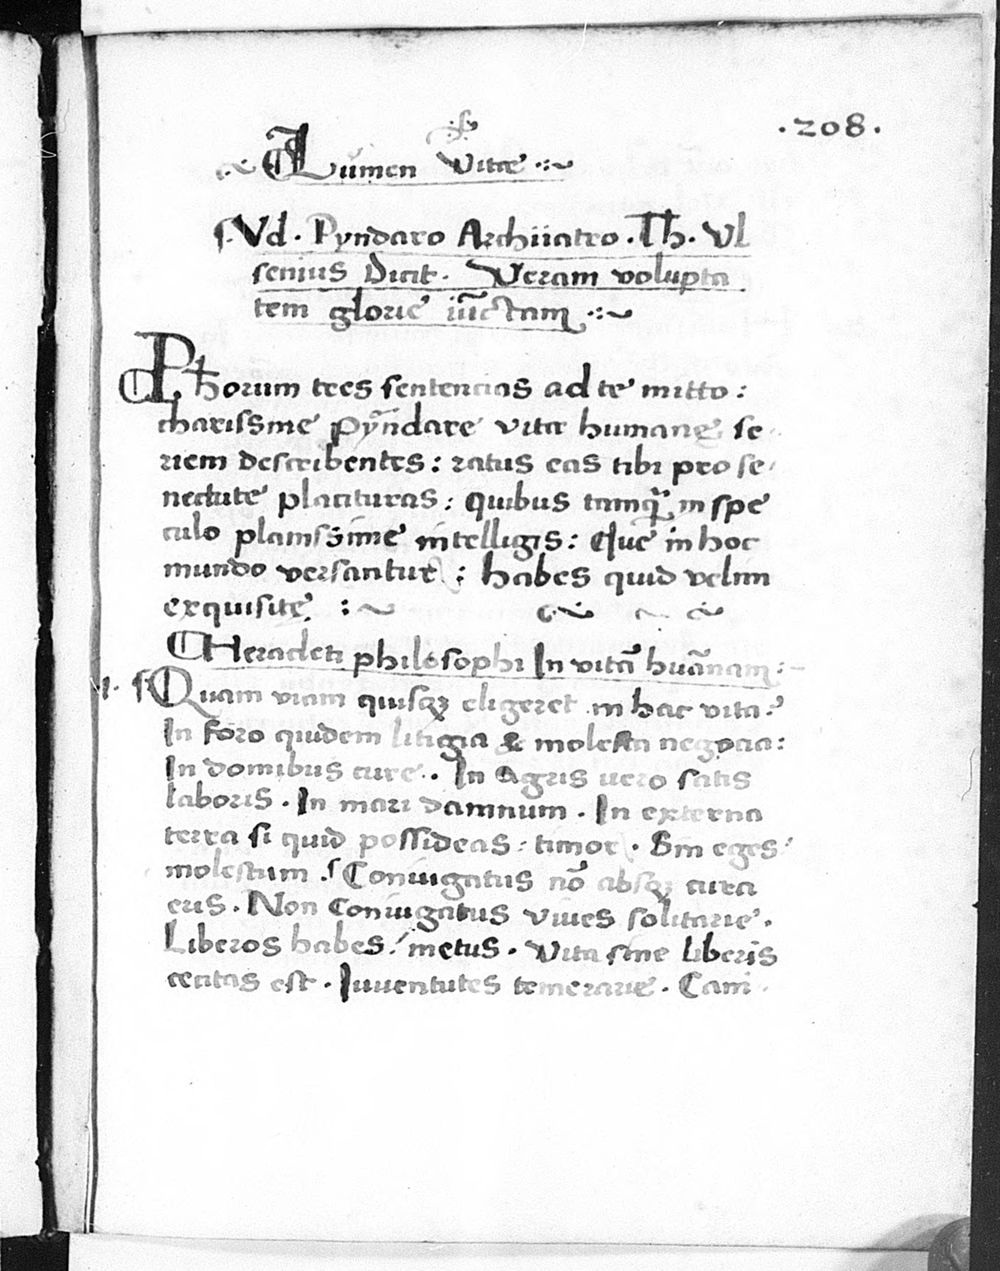 .208.
Lumen Vitae
Vd. Pyndaro Archiiatro. Th. Vl
senius Dicit. Veram volupta
tem glorie iũctam
Phorum tres sentencias ad te mitto:
charissime Pyndare vitae humane se
riem describentes: ratus eas tibi pro se
nectute placituras: quibus tamq̃ in spe
culo planissime intelligis: Que in hoc
mundo versantur: habes quid velim
exquisite:
Heracleti philosophi In vitã huãnam:
1. Quam viam quisqȝ eligeret in hac vita?
In foro quidem litigia & molesta negocia:
In domibus cure. In Agris uero satis
laboris. In mari damnum. In externa
terra si quid possideas: timor. Sin eges:
molestum. Coniugatus nõ absqȝ cura
eris. Non Coniugatus vives solitarie.
Liberos habes! metus. Vita sine liberis
cecitas est. Iuventutes temerarie. Cani